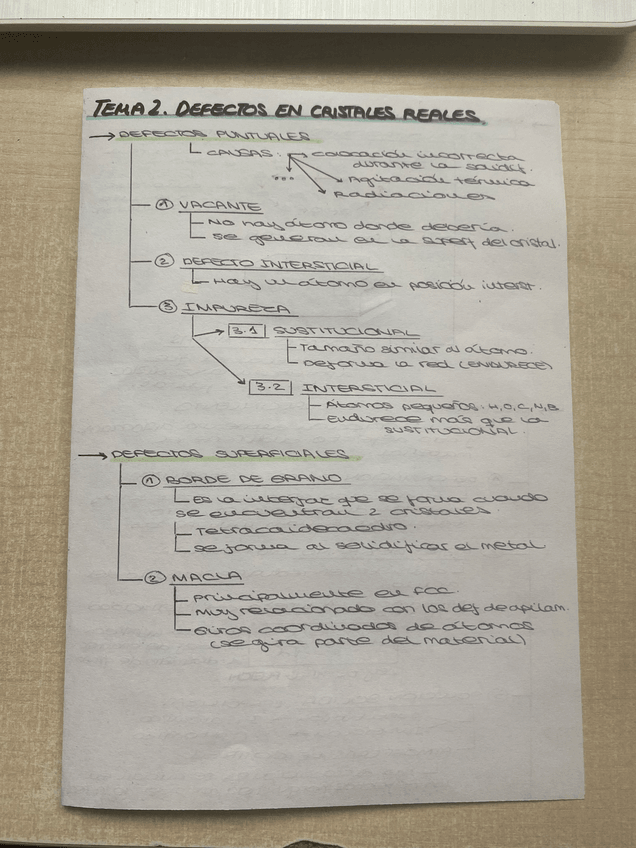 TEMA 2. DEFECTOS EN CRISTALES REALES
→ DEFECTOS PUNTUALES
CAUSAS colocación incorrecta
durante la solidif.
... Agitación térmica
Radiaciones
① VACANTE
No hay átomo donde debería.
Se generan en la superf del cristal.
② DEFECTO INTERSTICIAL
Hay un átomo en posición interst.
③ IMPUREZA
3.1 SUSTITUCIONAL
Tamaño similar al átomo.
Deforma la red (ENDURECE)
3.2 INTERSTICIAL
Átomos pequeños: H, O, C, N, B
Endurece más que la
SUSTITUCIONAL.
→ DEFECTOS SUPERFICIALES
① BORDE DE GRANO
Es la interfaz que se forma cuando
se encuentran 2 cristales.
Tetracaidecaedro.
Se forma al solidificar el metal
② MACLA
Principalmente en FCC.
Muy relacionado con los def de apilam.
Giros coordinados de átomos
(se gira parte del material)